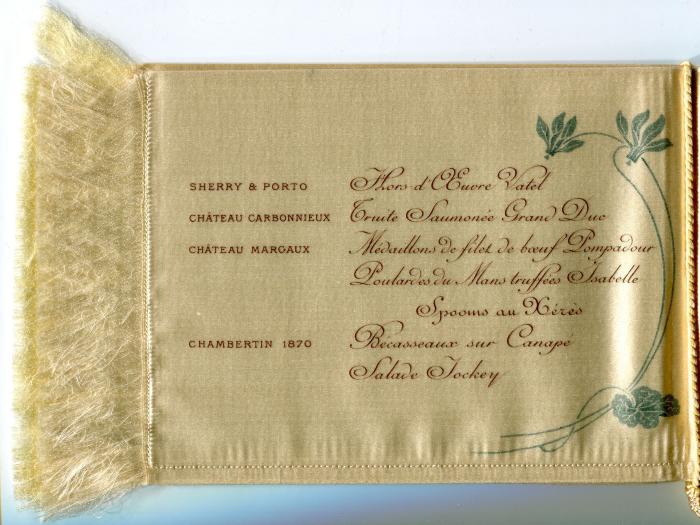 SHERRY & PORTO Hors d'Œuvre Vatel
CHÂTEAU CARBONNIEUX Truite Saumonée Grand Duc
CHÂTEAU MARGAUX Médaillons de filet de bœuf Pompadour
Poulardes du Mans truffées Isabelle
Spooms au Xérès
CHAMBERTIN 1870 Bécasseaux sur Canapé
Salade Jockey